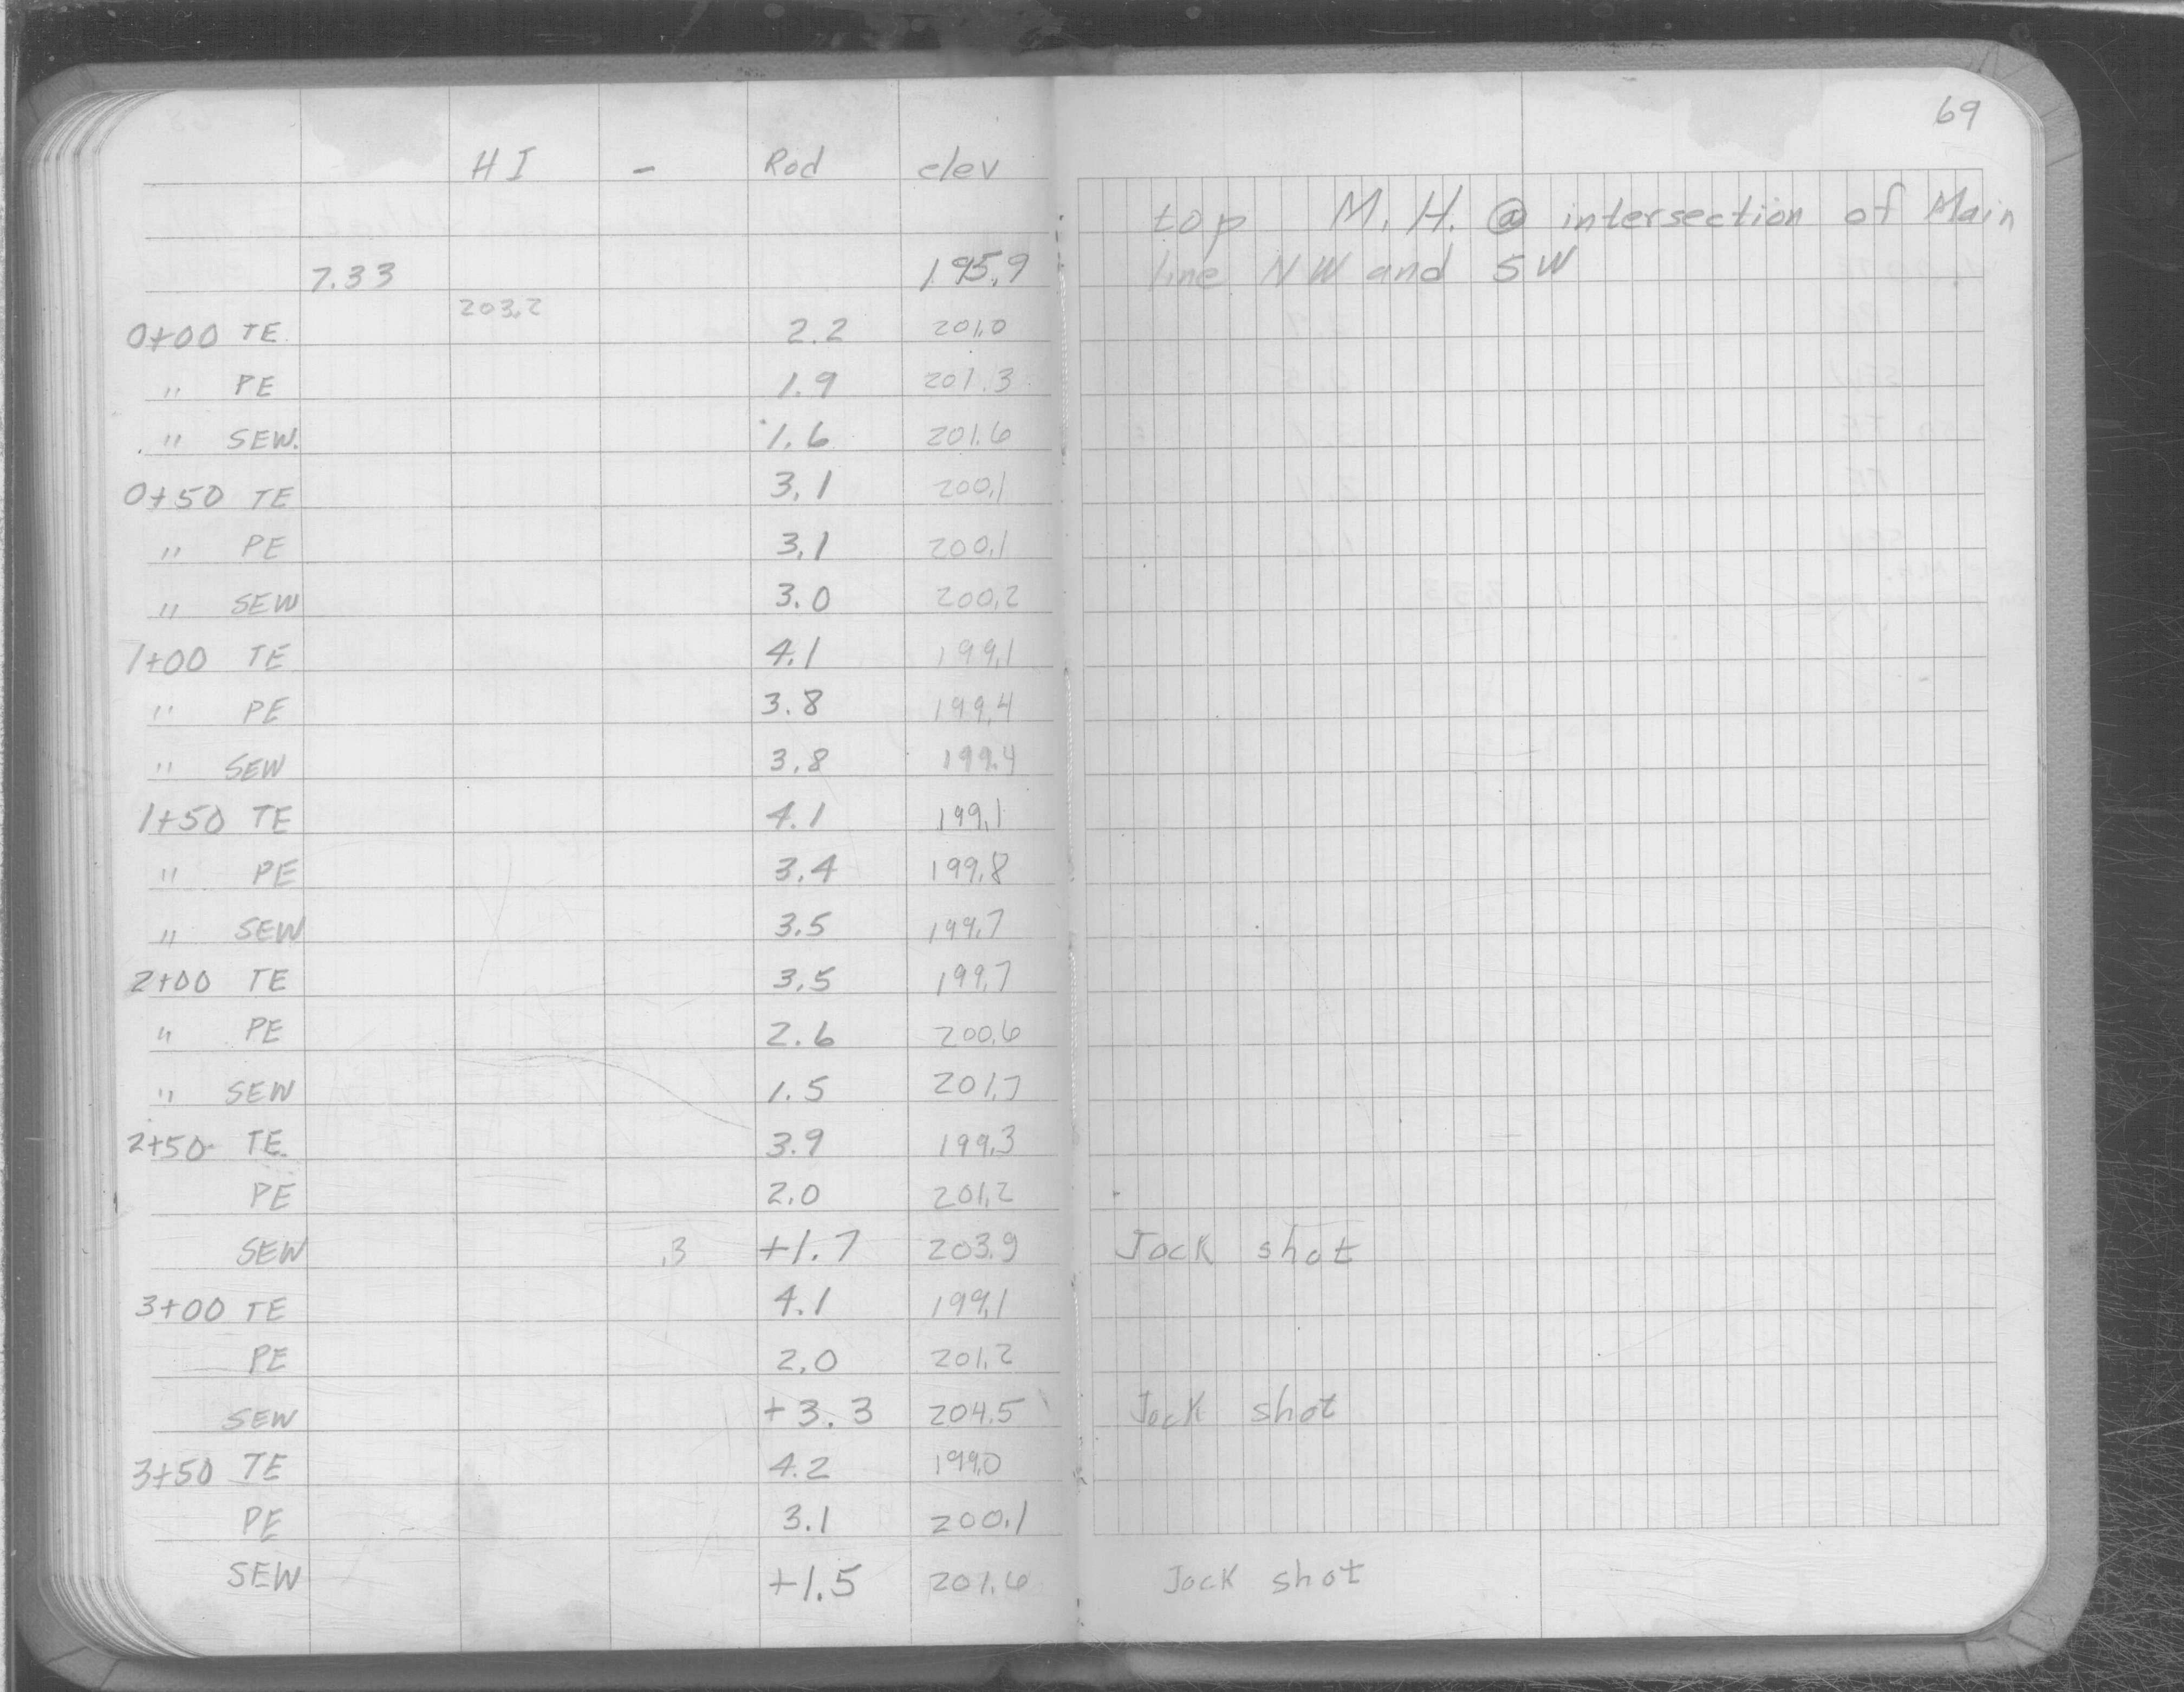 69
HI - Rod elev
top M.H. @ intersection of Main
7.33 195.9 line NW and SW
203.2
0+00 TE 2.2 201.0
" PE 1.9 201.3
" SEW. 1.6 201.6
0+50 TE 3.1 200.1
" PE 3.1 200.1
" SEW 3.0 200.2
1+00 TE 4.1 199.1
" PE 3.8 199.4
" SEW 3.8 199.4
1+50 TE 4.1 199.1
" PE 3.4 199.8
" SEW 3.5 199.7
2+00 TE 3.5 199.7
" PE 2.6 200.6
" SEW 1.5 201.7
2+50 TE 3.9 199.3
PE 2.0 201.2
SEW .3 +1.7 203.9 Jock shot
3+00 TE 4.1 199.1
PE 2.0 201.2
SEW +3.3 204.5 Jock shot
3+50 TE 4.2 199.0
PE 3.1 200.1
SEW +1.5 201.6 Jock shot